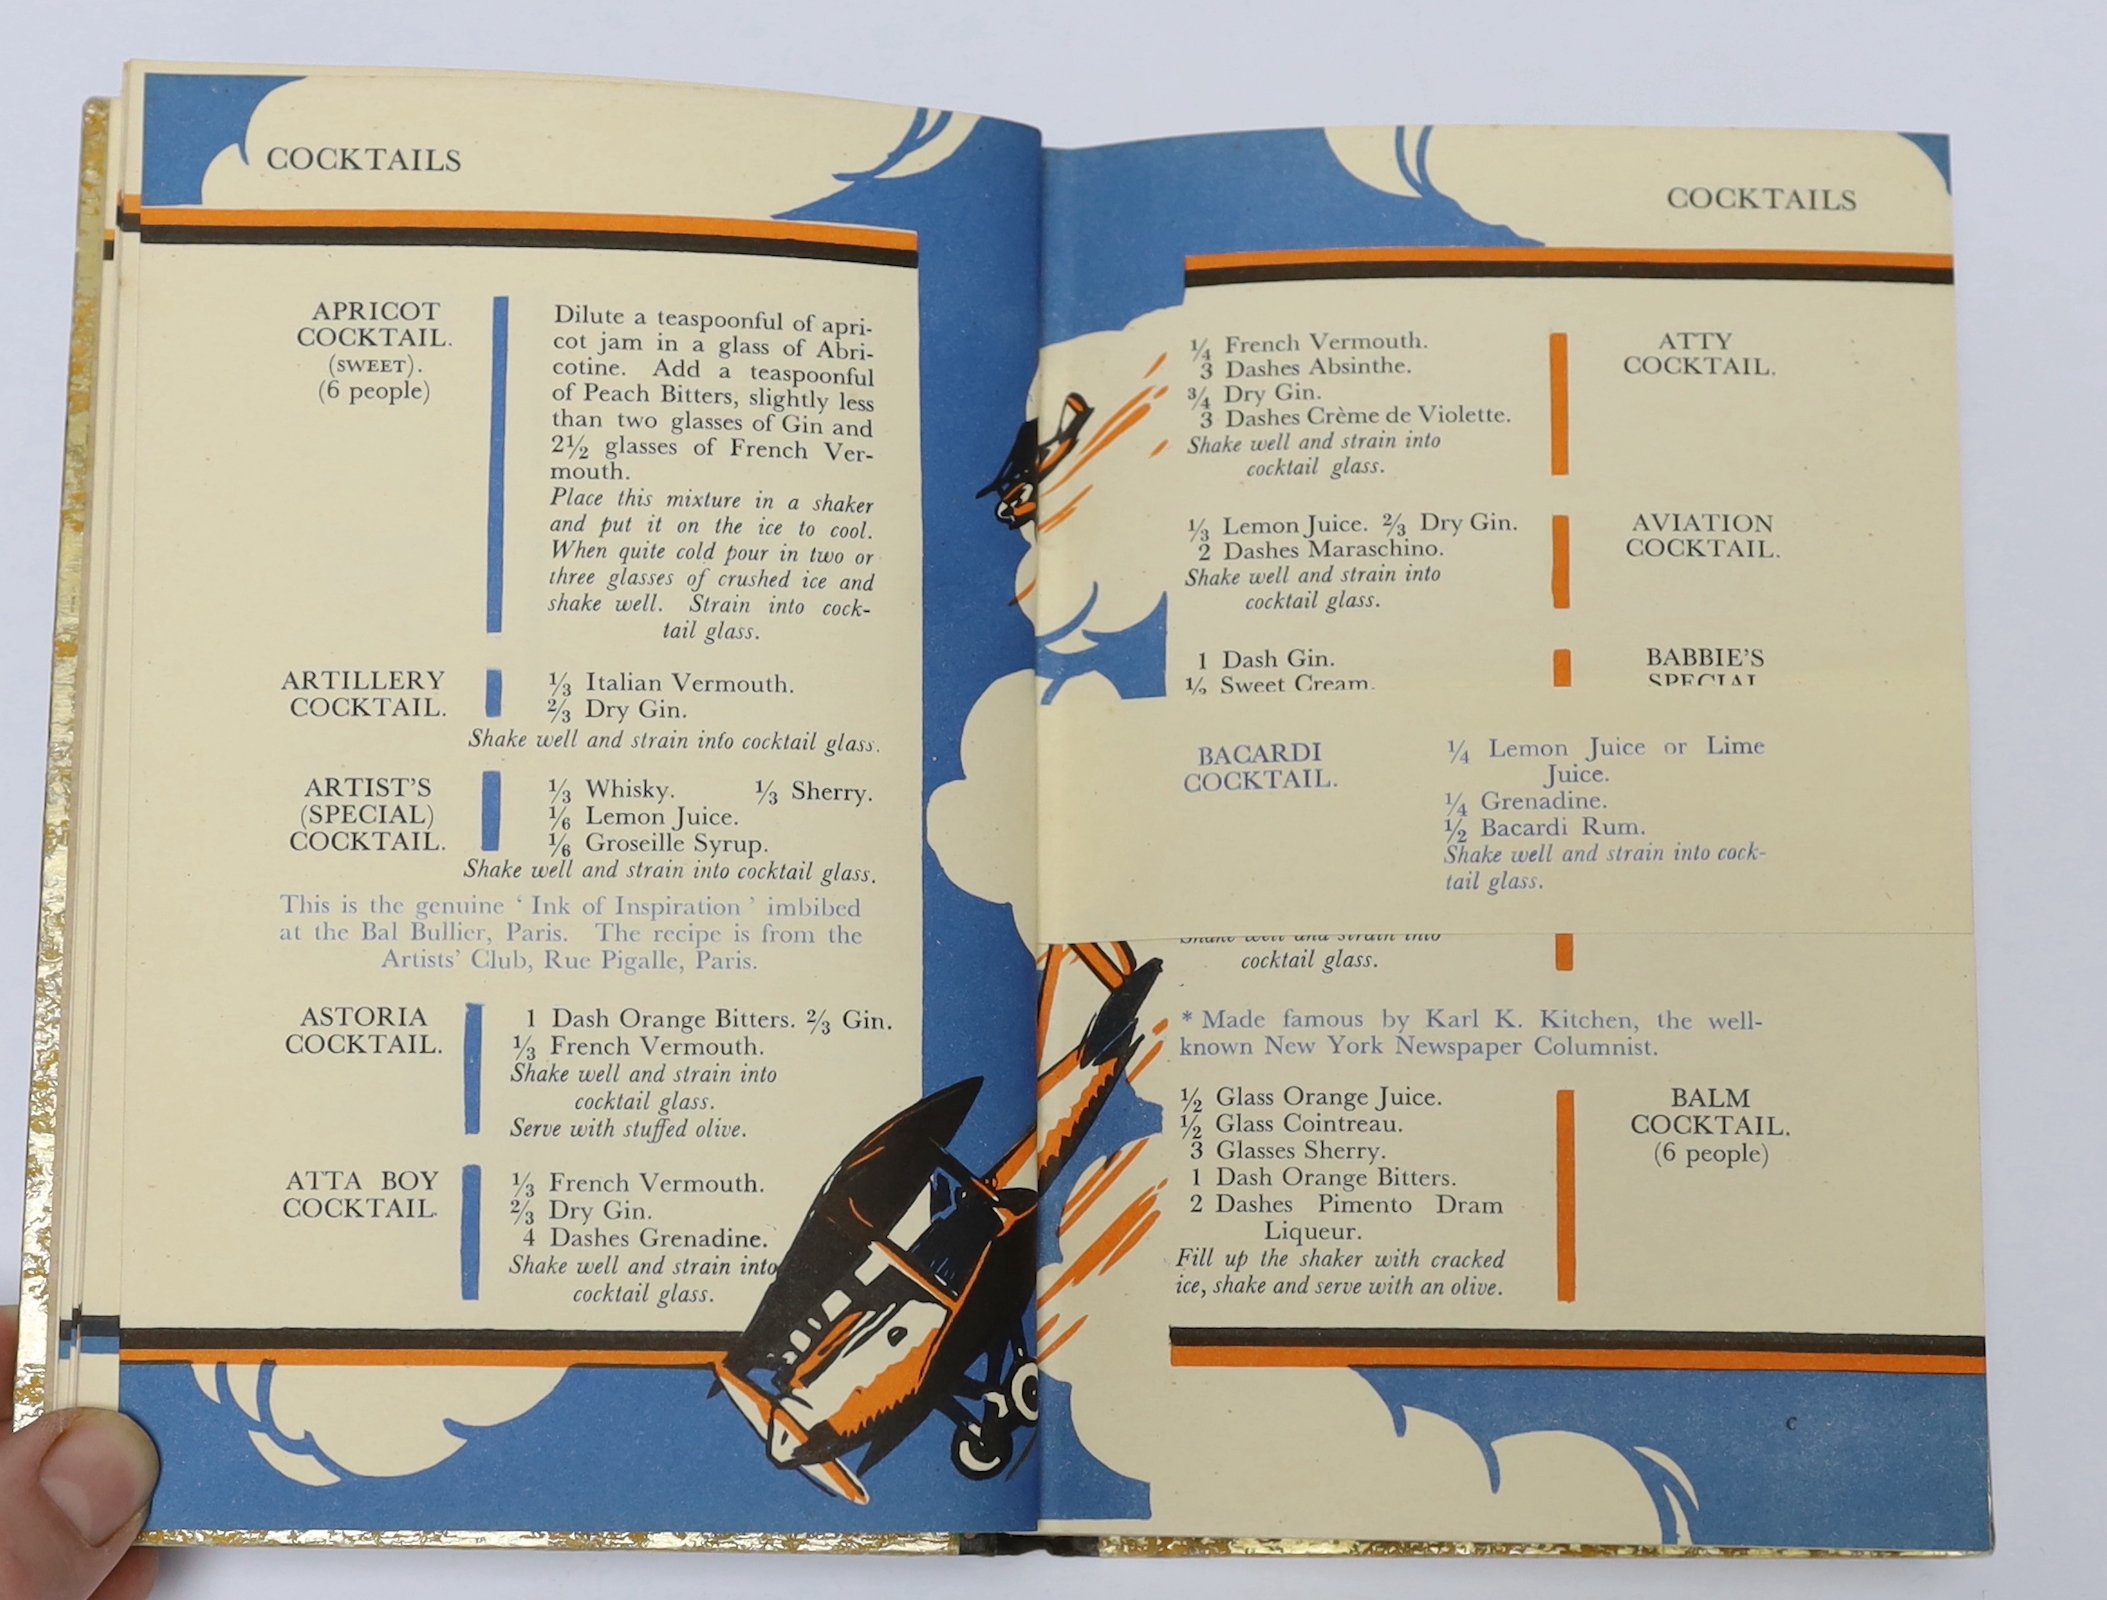 COCKTAILS
APRICOT
COCKTAIL.
(SWEET).
(6 people)
Dilute a teaspoonful of apri-
cot jam in a glass of Abri-
cotine. Add a teaspoonful
of Peach Bitters, slightly less
than two glasses of Gin and
2½ glasses of French Ver-
mouth.
Place this mixture in a shaker
and put it on the ice to cool.
When quite cold pour in two or
three glasses of crushed ice and
shake well. Strain into cock-
tail glass.
ARTILLERY
COCKTAIL.
⅓ Italian Vermouth.
⅔ Dry Gin.
Shake well and strain into cocktail glass.
ARTIST'S
(SPECIAL)
COCKTAIL.
⅓ Whisky. ⅓ Sherry.
⅙ Lemon Juice.
⅙ Groseille Syrup.
Shake well and strain into cocktail glass.
This is the genuine ‘ Ink of Inspiration ’ imbibed
at the Bal Bullier, Paris. The recipe is from the
Artists’ Club, Rue Pigalle, Paris.
ASTORIA
COCKTAIL.
1 Dash Orange Bitters. ⅔ Gin.
⅓ French Vermouth.
Shake well and strain into
cocktail glass.
Serve with stuffed olive.
ATTA BOY
COCKTAIL
⅓ French Vermouth.
⅔ Dry Gin.
4 Dashes Grenadine.
Shake well and strain into
cocktail glass.
COCKTAILS
¼ French Vermouth.
3 Dashes Absinthe.
¾ Dry Gin.
3 Dashes Crème de Violette.
Shake well and strain into
cocktail glass.
ATTY
COCKTAIL.
⅓ Lemon Juice. ⅔ Dry Gin.
2 Dashes Maraschino.
Shake well and strain into
cocktail glass.
AVIATION
COCKTAIL.
1 Dash Gin.
Sweet Cream.
BABBIE'S
SPECIAL
BACARDI
COCKTAIL.
¼ Lemon Juice or Lime
Juice.
¼ Grenadine.
½ Bacardi Rum.
Shake well and strain into cock-
tail glass.
Shake well and strain into
cocktail glass.
* Made famous by Karl K. Kitchen, the well-
known New York Newspaper Columnist.
½ Glass Orange Juice.
½ Glass Cointreau.
3 Glasses Sherry.
1 Dash Orange Bitters.
2 Dashes Pimento Dram
Liqueur.
Fill up the shaker with cracked
ice, shake and serve with an olive.
BALM
COCKTAIL.
(6 people)
C